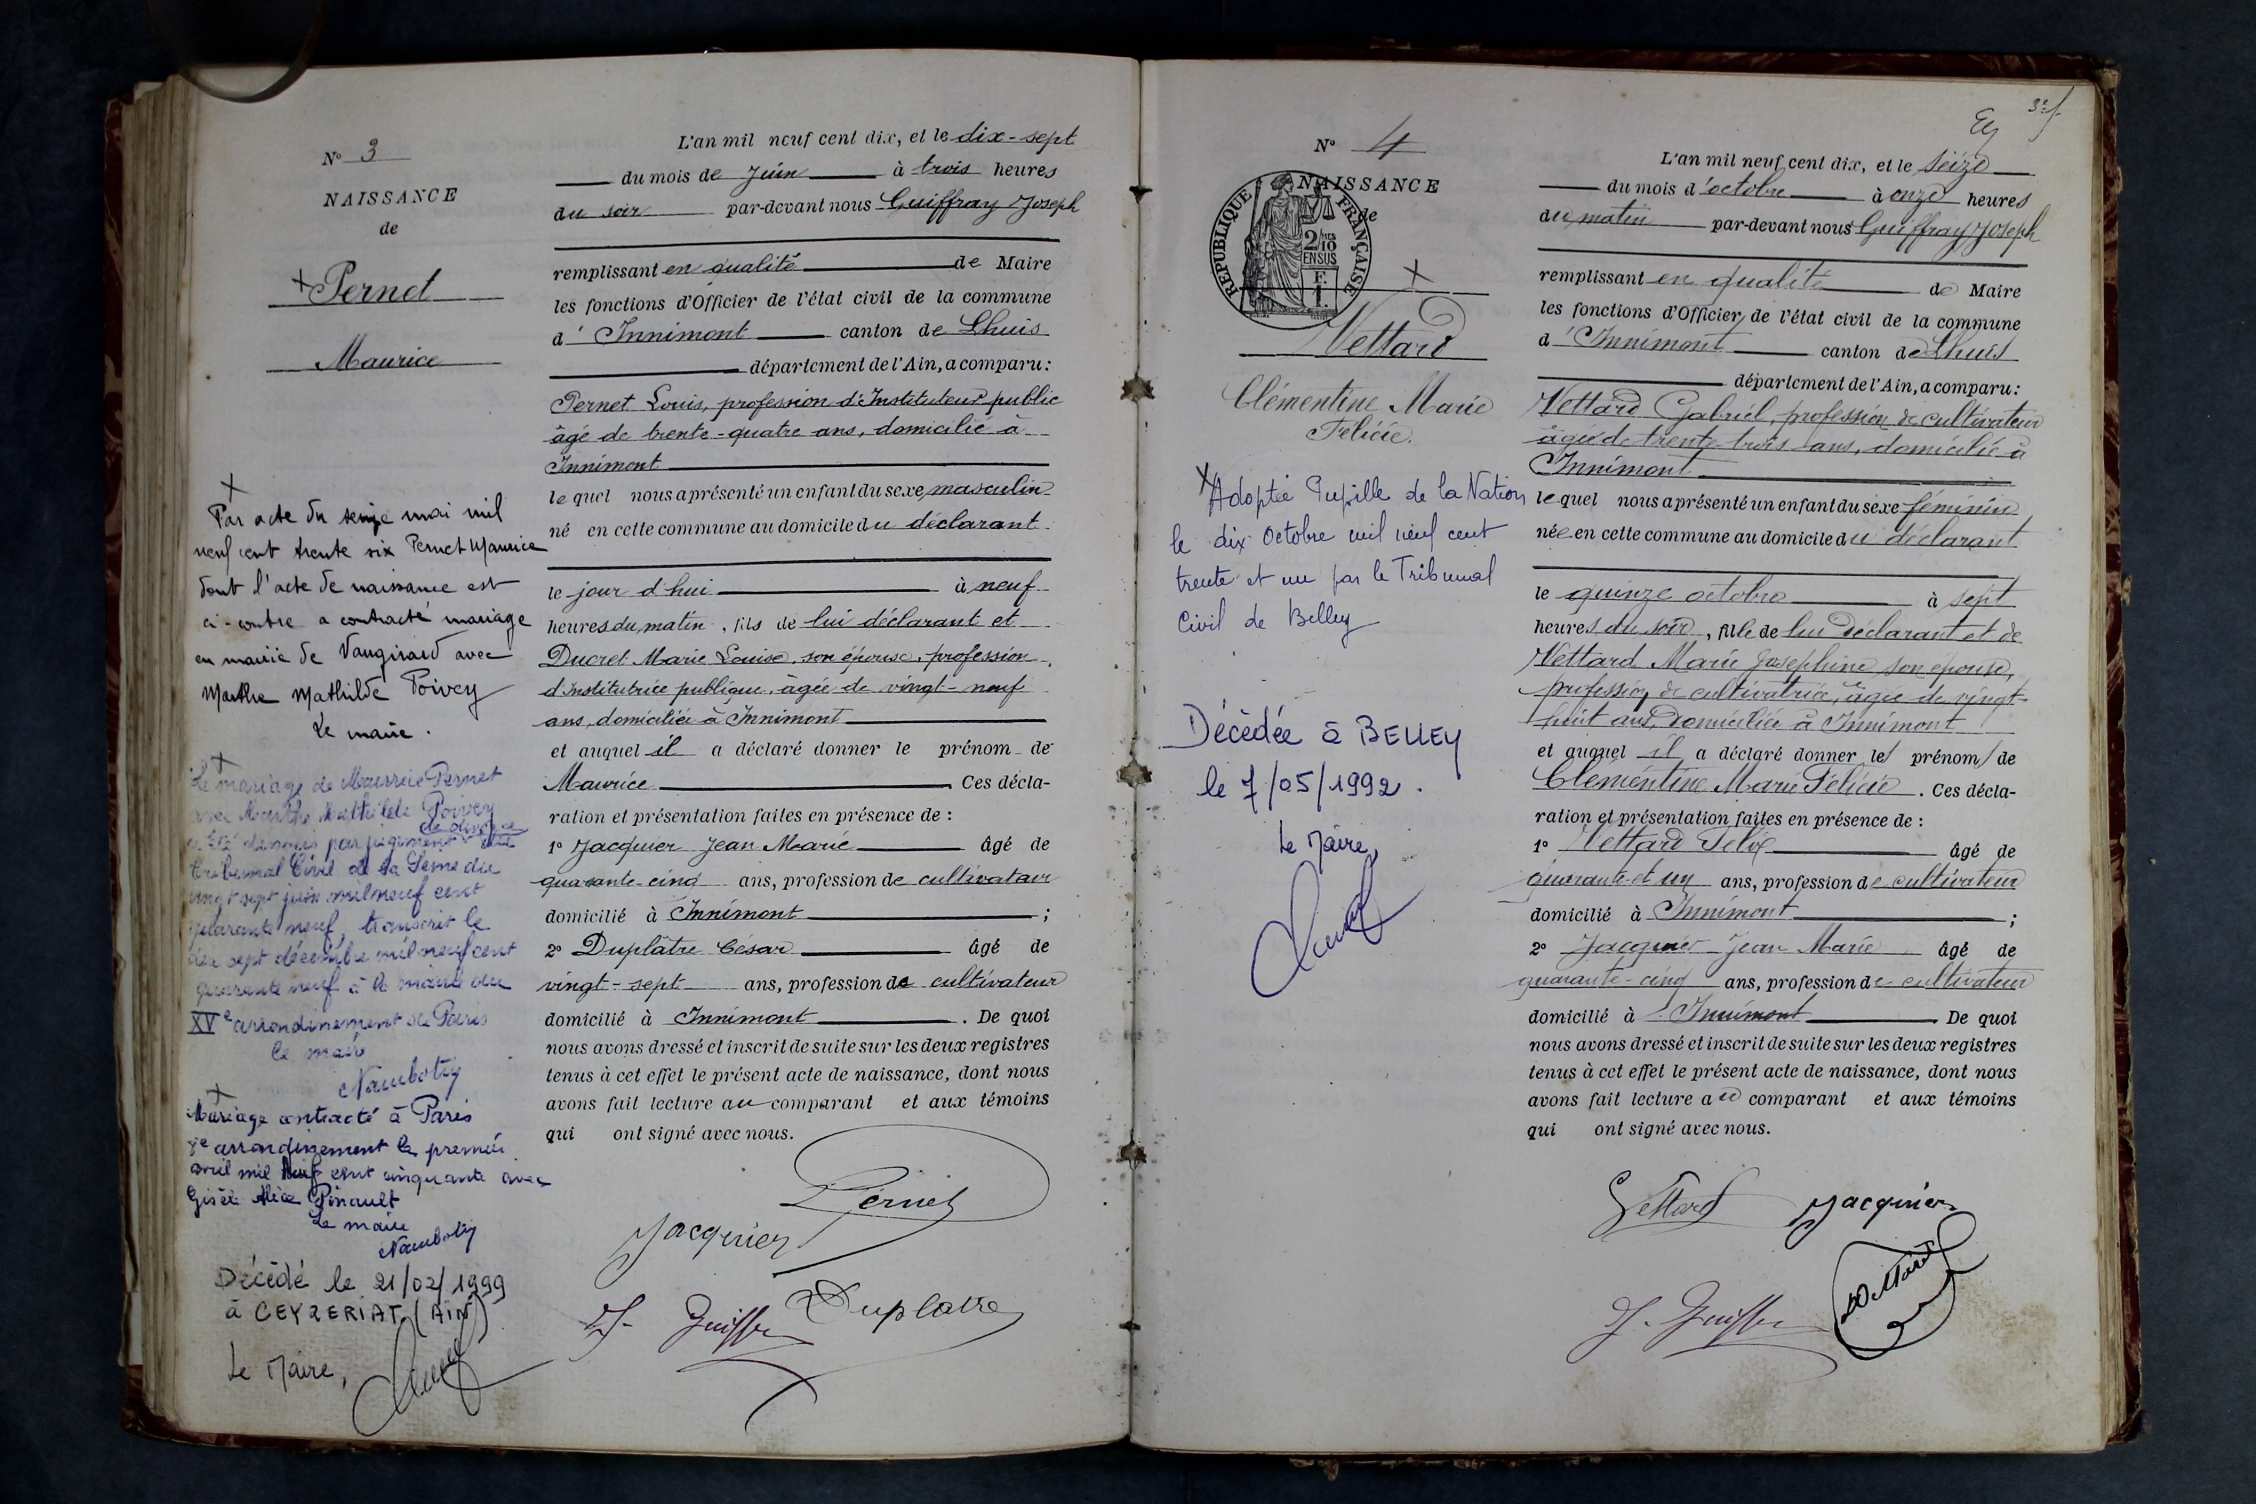 N° 3
NAISSANCE
de
+ Pernet
Maurice
+
Par acte du seize mai mil
neuf cent trente six Pernet Maurice
dont l'acte de naissance est
ci-contre a contracté mariage
en mairie de Vaugirard avec
Marthe Mathilde Poivey
Le maire.
+
Le mariage de Maurice Pernet
avec Marthe Mathilde Poivey
de divorce
a été dissous par jugement du
tribunal Civil de la Seine du
vingt sept juin mil neuf cent
quarante neuf, transcrit le
dix sept décembre mil neuf cent
quarante neuf à la mairie du
XVe arrondissement de Paris
le maire
Nambotin
+
Mariage contracté à Paris
arrondissement le premier
avril mil neuf cent cinquante avec
Gisèle Alice Pinault
Le maire
Nambotin
Décédé le 21/02/1999
à CEYZERIAT (AIN)
Le Maire,
L'an mil neuf cent dix, et le dix-sept
du mois de Juin à trois heures
du soir par-devant nous Guiffray Joseph
remplissant en qualité de Maire
les fonctions d'Officier de l'état civil de la commune
d' Innimont canton de Lhuis
département de l'Ain, a comparu:
Pernet Louis, profession d'Instituteur public
âgé de trente-quatre ans, domicilié à
Innimont
le quel nous a présenté un enfant du sexe masculin
né en cette commune au domicile du déclarant
le jour d'hui à neuf
heures du matin, fils de lui déclarant et
Ducret Marie Louise, son épouse, profession
d'institutrice publique, âgée de vingt-neuf
ans, domiciliée à Innimont
et auquel il a déclaré donner le prénom de
Maurice Ces décla-
ration et présentation faites en présence de :
1° Jacquier Jean Marie âgé de
quarante-cinq ans, profession de cultivateur
domicilié à Innimont ;
2° Duplâtre César âgé de
vingt-sept ans, profession de cultivateur
domicilié à Innimont . De quoi
nous avons dressé et inscrit de suite sur les deux registres
tenus à cet effet le présent acte de naissance, dont nous
avons fait lecture au comparant et aux témoins
qui ont signé avec nous.
Pernet
Jacquier
J. Guiffray Duplatre
N° 4
NAISSANCE
de
RÉPUBLIQUE FRANÇAISE
2/10
EN SUS
F.
1.
+
Vettard
Clémentine Marie
Félicie.
+ Adoptée Pupille de la Nation
le dix Octobre mil neuf cent
trente et un par le Tribunal
Civil de Belley
Décédée à BELLEY
le 7/05/1992.
Le Maire,
L'an mil neuf cent dix, et le seize
du mois d'octobre à onze heures
du matin par-devant nous Guiffray Joseph
remplissant en qualité de Maire
les fonctions d'Officier de l'état civil de la commune
d' Innimont canton de Lhuis
département de l'Ain, a comparu:
Vettard Gabriel, profession de cultivateur
âgé de trente-trois ans, domicilié à
Innimont
le quel nous a présenté un enfant du sexe féminin
née en cette commune au domicile du déclarant
le quinze octobre à sept
heures du soir, fille de lui déclarant et de
Vettard Marie Joséphine son épouse,
profession de cultivatrice, âgée de vingt-
huit ans, domiciliée à Innimont
et auquel il a déclaré donner le/ prénom/ de
Clémentine Marie Félicie . Ces décla-
ration et présentation faites en présence de :
1° Vettard Félix âgé de
quarante et un ans, profession de cultivateur
domicilié à Innimont ;
2° Jacquier Jean Marie âgé de
quarante-cinq ans, profession de cultivateur
domicilié à Innimont . De quoi
nous avons dressé et inscrit de suite sur les deux registres
tenus à cet effet le présent acte de naissance, dont nous
avons fait lecture au comparant et aux témoins
qui ont signé avec nous.
Vettard Jacquier
J. Guiffray Vettard